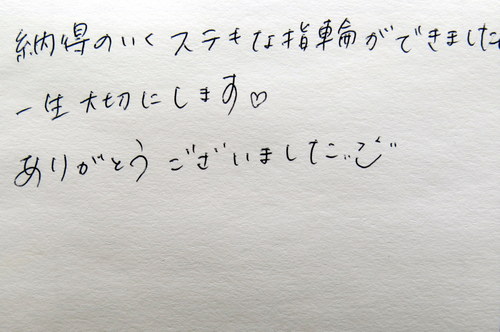 納得のいくステキな指輪ができました
一生大切にします♡
ありがとうございました